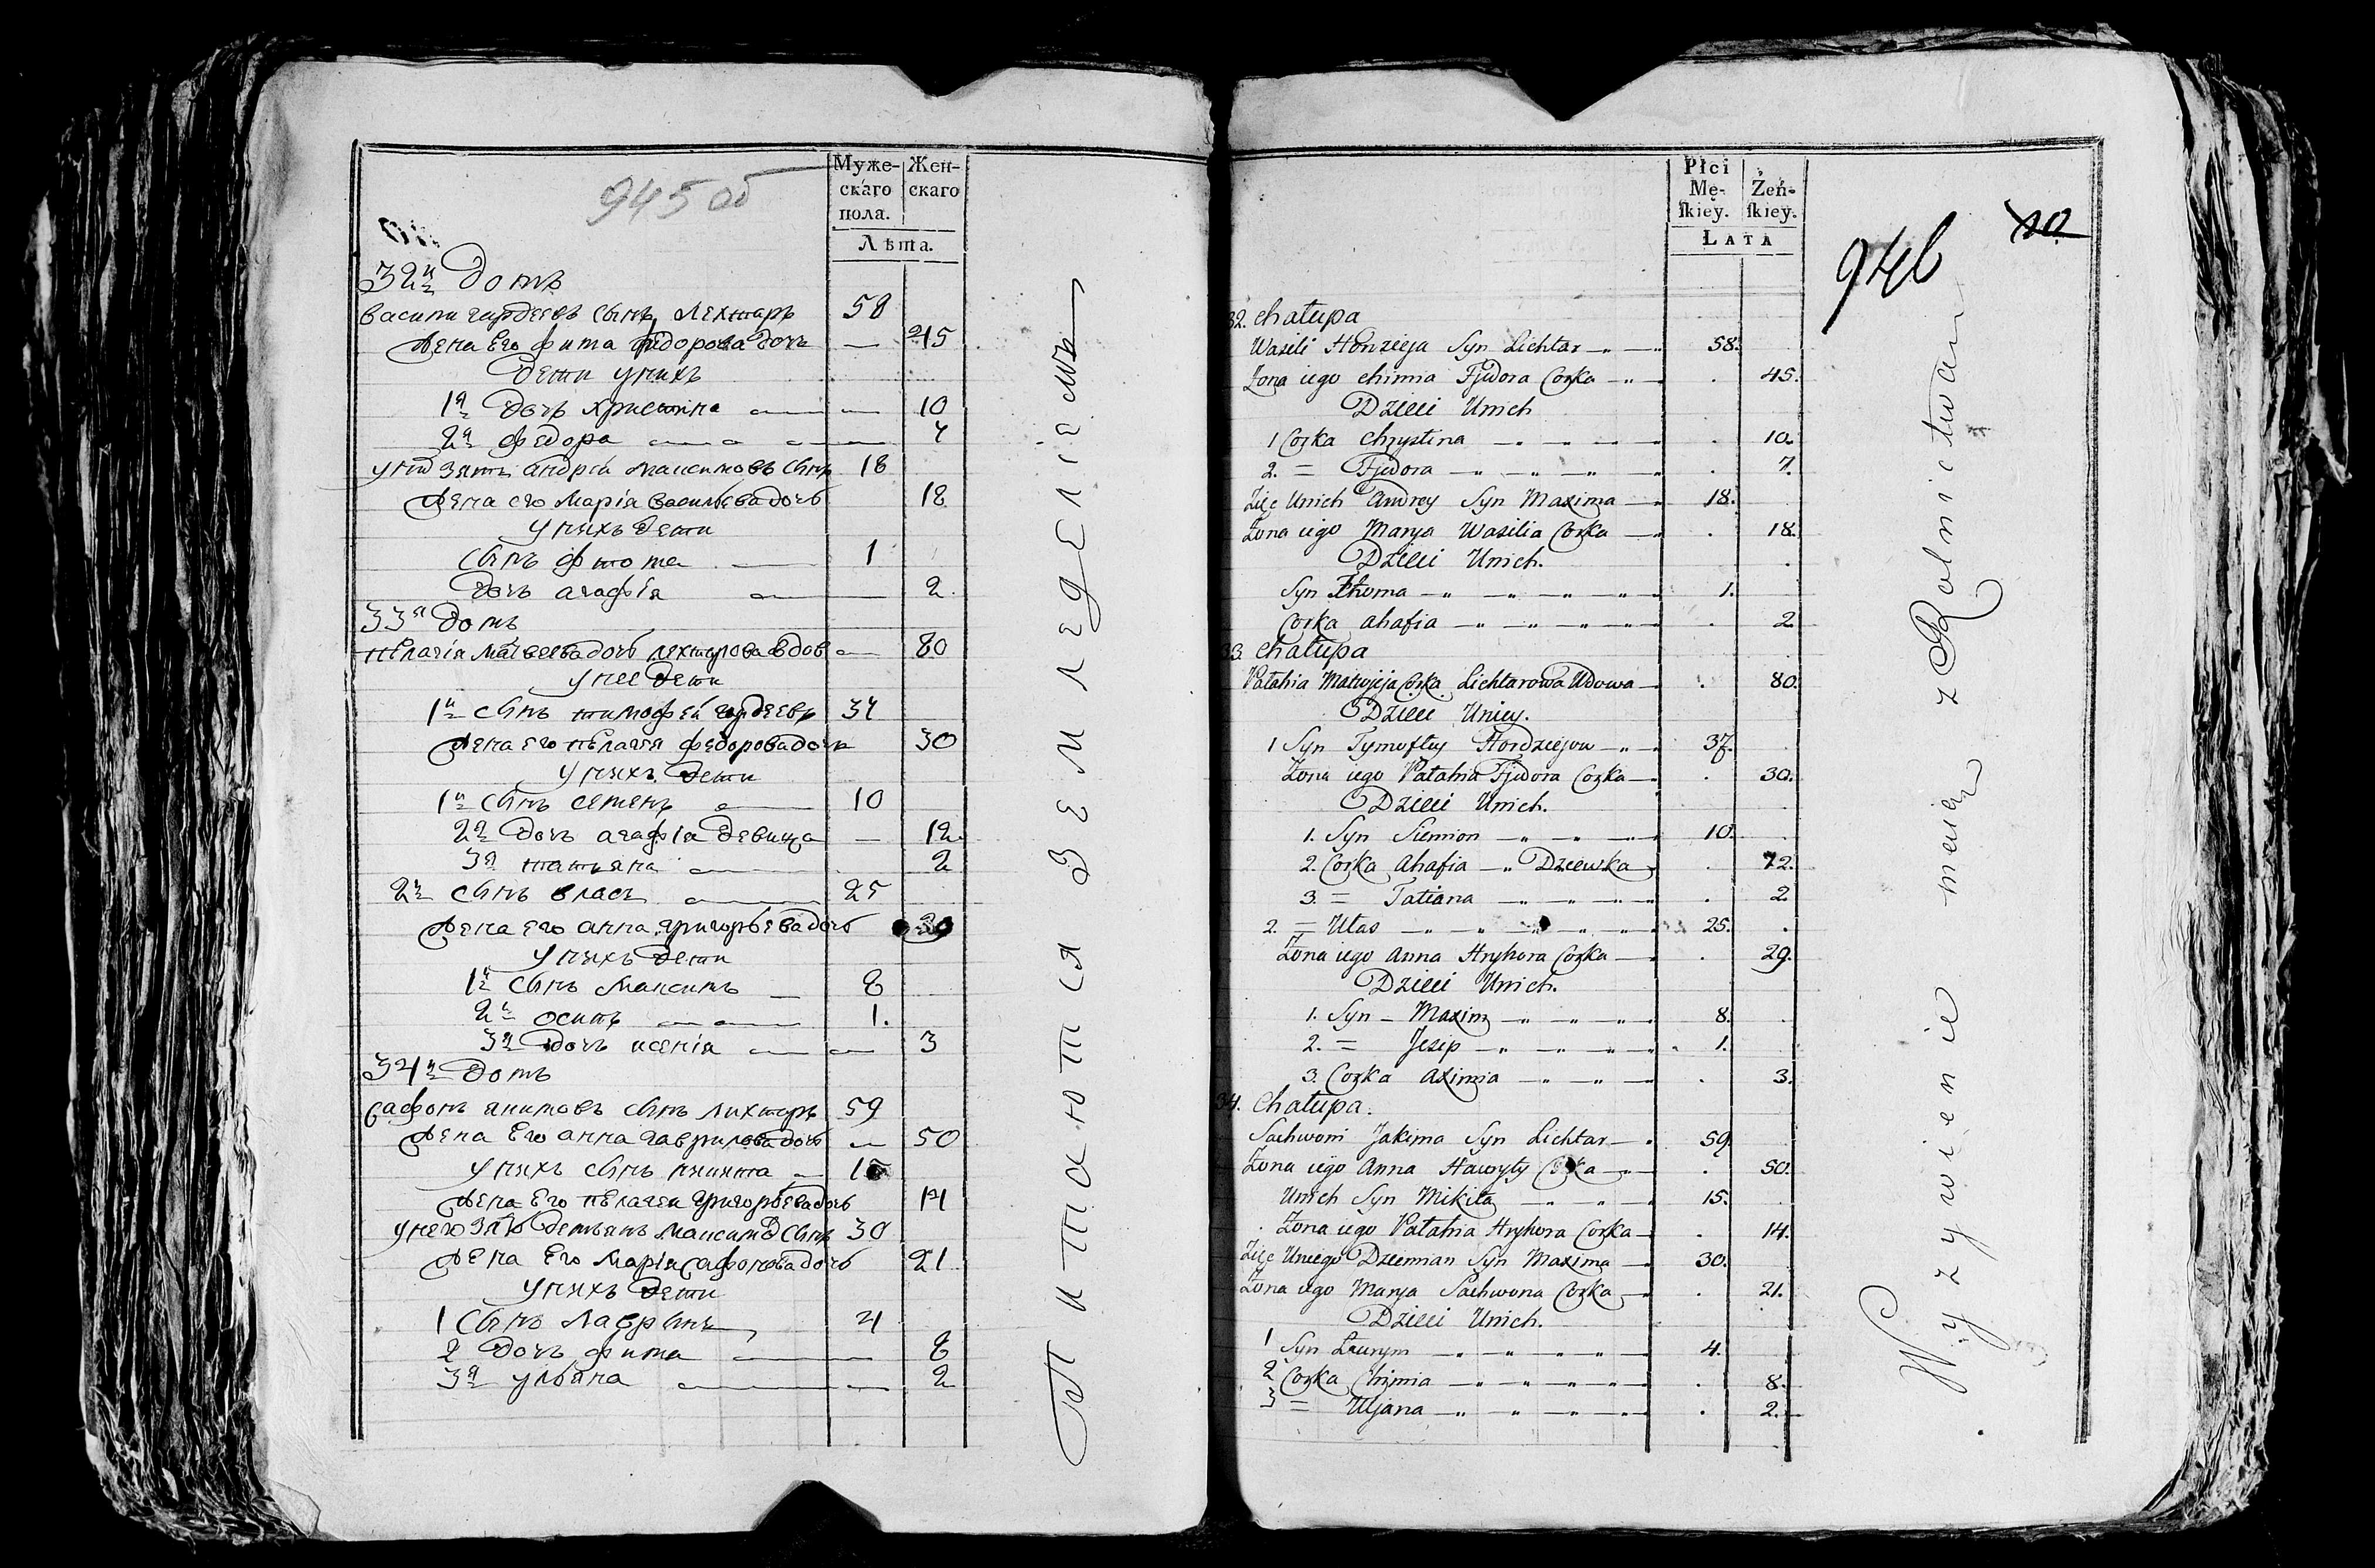 945 об
Муже-
скаго
пола.
Жен-
скаго
Лѣта.
32й Домъ
василий гордеевъ сынъ лехтаръ 58
жена Его фима федорова дочь — 45
дети у нихъ
1я дочь христина — 10
2я федора — 7
у них зять андрей максимовъ сынъ 18
жена его марія васильева дочь 18
у нихъ дети
сынъ фтома — 1
дочь агафія — 2
33й домъ
пелагія матвеева дочь лехтарова вдова — 80
у нее дети
1й сынъ тимофей гордеевъ 37
жена его пелагея федорова дочь 30
у нихъ дети
1й сынъ семенъ — 10
2я дочь агафія девица — 12
3я татьяна — 2
2й сынъ власъ — 25
жена его анна григорьева дочь 30
у нихъ дети
1й сынъ максимъ — 8
2й осипъ — 1.
3я дочь ксенія — 3
34й домъ
сафонъ якимовъ сынъ лихтаръ 59
жена Его анна гаврилова дочь — 50
у нихъ сынъ никита — 15
жена Его пелагея григорьева дочь 14
у него зять демьянъ максимов сынъ 30
жена Его марія сафонова дочь 21
у нихъ дети
1 сынъ лаврынъ 4
2 дочь фима — 8
3я ульяна — 2
Питаются Земледелиемъ
Płci
Mę-
ſkiey.
Żeń-
ſkiey.
Łata
946
32. Chałupa
Wasili Hordzieja Syn Lichtar — 58.
Żona iego Chimia Fjedora Corka — 45.
Dzieci Unich
1 Corka Chrystina — 10.
2. = Fjedora — 7.
Zięc Unich Andrey Syn Maxima — 18.
Żona iego Marya Wasilia Corka — 18.
Dzieci Unich.
Syn Thoma — 1.
Corka Ahafia — 2
33. Chałupa
Pałahia Matwijeja Corka Lichtarowa Udowa — 80.
Dzieci Uniey.
1 Syn Tymoftey Hordziejow — 37.
Żona iego Pałahia Fjedora Corka — 30.
Dzieci Unich.
1. Syn Siemion — 10.
2. Corka Ahafia — Dziewka 12.
3. = Tatiana — 2.
2. = Ułas — 25.
Żona iego Anna Hryhora Corka — 29.
Dzieci Unich.
1. Syn — Maxim — 8.
2. = Jesip — 1.
3. Corka Axinia — 3.
34. Chałupa.
Sachwoni Jakima Syn Lichtar — 59.
Żona iego Anna Hawryły Corka — 50.
Unich Syn Mikita — 15.
Żona iego Pałahia Hryhora Corka — 14.
Zięc Uniego Dziemian Syn Maxima — 30.
Żona iego Marya Sachwona Corka — 21.
Dzieci Unich.
1 Syn Ławryn — 4.
2 Corka Chimia — 8.
3 = Uljana — 2.
Wyzywienie maią z Rolnictwa